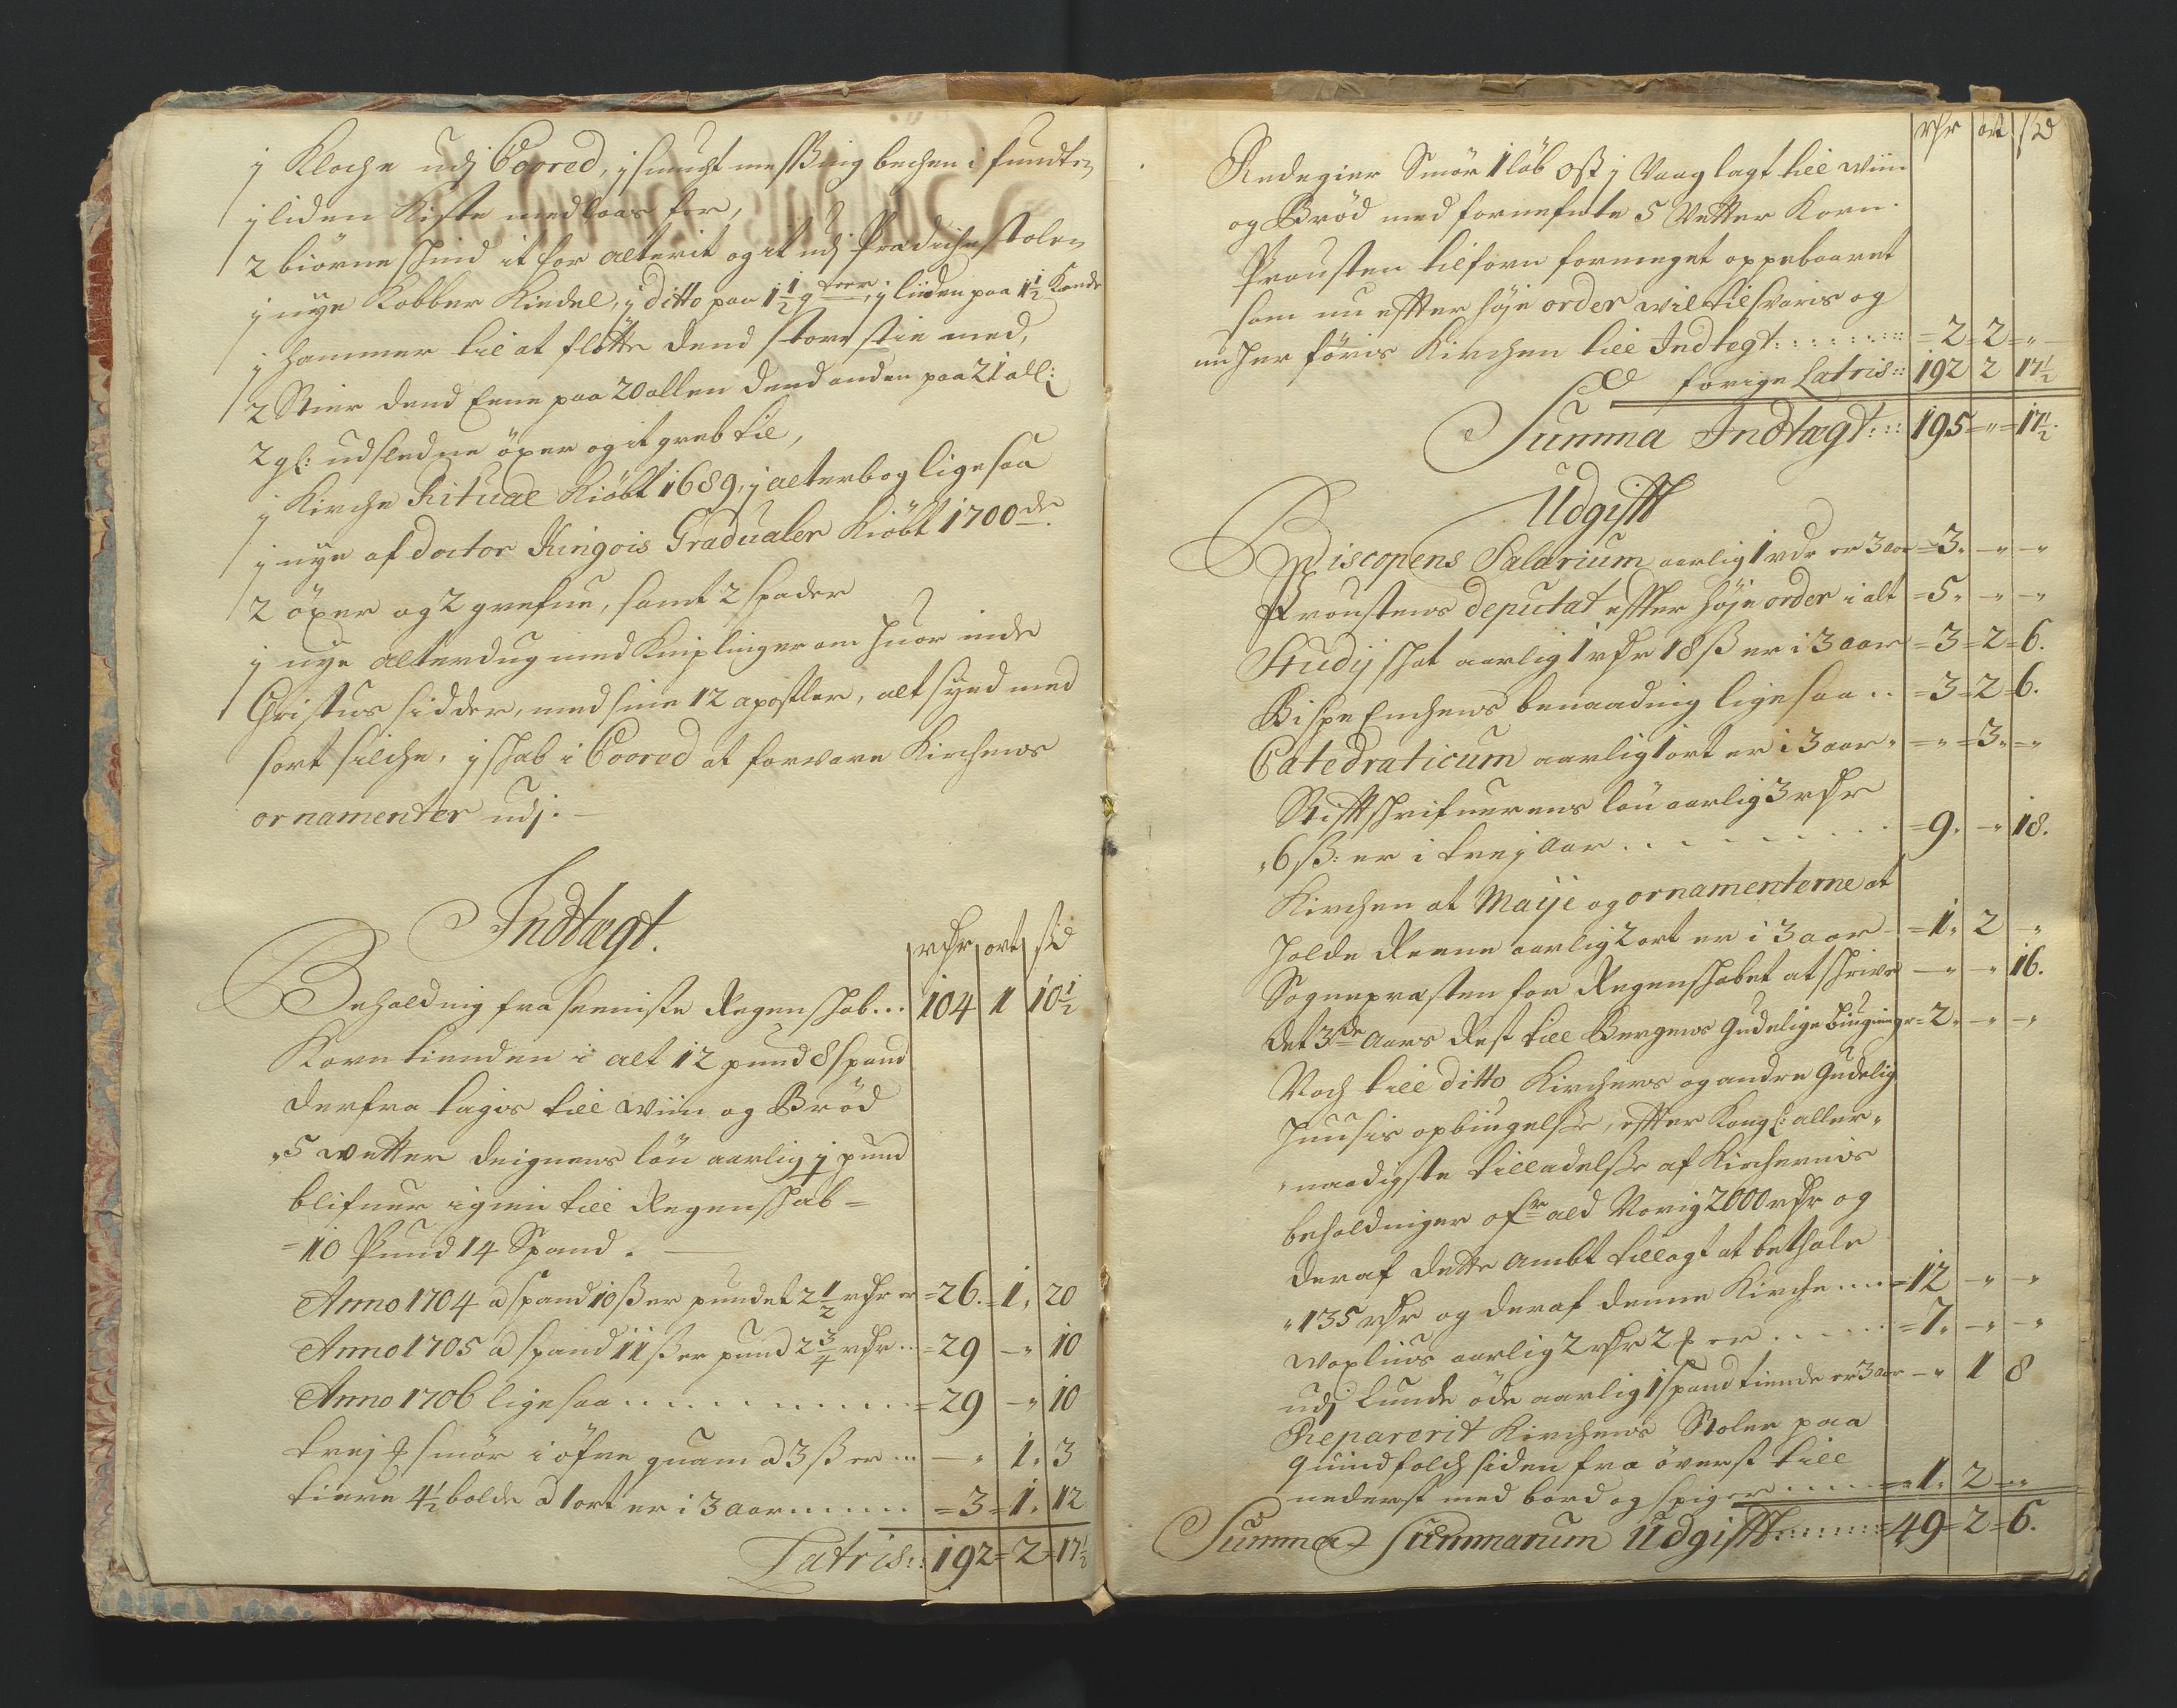 j Kloche udj Coored, j smucht messing bechen i funten
j liden Kiste med laas for,
2 biörne skind it for alterit og it udj Prædichestolen
j nye Kobber Kiedel, j ditto paa 1 1/2 j liiden paa 1 1/2 Kande
j hammer til at flötte dend store stie med,
2 Stier dend Eene paa 20 allen dend anden paa 21 all:
2 gl: udsledne öxer og it greb til,
j Kirche Ritual Kiöbt 1689, j alterbog ligesaa
j nye af doctor Kingois Gradualer Kiöbt 1700 de
2 öxer og 2 grefue, samt 2 spader
j nye alterdug med Kniplinger om huor inde
Christus sidder, med sine 12 apostler, alt syed med
sort silche, j skab i Coored at forvare Kirchens
ornamenter udj.
Indtægt.
rdr ort sk
Beholdning fra seeniste Regenskab... 104 1 10 1/2
Korntienden i alt 12 pund 8 spand
derfra tagis till wiin og Bröd
5 wetter deignens lön aarlig j pund
blifuer igien till Regenskab =
= 10 Pund 14 Spand.
Anno 1704 a spand 10 ß er pundet 2 1/2 rdr er = 26. = 1. 20
Anno 1705 a spand 11 ß er pund 2 3/4 rdr .. = 29 - 10
Anno 1706 ligesaa ........... = 29 - 10
trej smör i öfre quam a 3 ß er ... - 1. 3
tiere 4 1/2 bolde a 1 ort er i 3 aar ...... = 3 = 1. 12
Latris:: 192 = 2 = 17 1/2
rdr ort sk
Andegier Smör 1 löb ost j Waag lagt till wiin
og Bröd med fornefnte 5 Vetter Korn.
Prousten tilforn formeget oppebaaret
som nu effter höje order wil tilsvaris og
nu her föris Kirchen till Indtegt:........ = 2 = 2 = "
forige Latris:: 192 2 17 1/2
Summa Indtægt::: 195 = " = 17 1/2
Udgifft
Biscopens Salarium aarlig 1 rdr er 3 aar = 3. - " - "
Proustens deputat effter höje order i alt = 5. - " - "
Studij skat aarlig 1 rdr 18 ß er i 3 aar = 3 = 2 = 6.
Bispe Enchens benaadnig ligesaa .. = 3 = 2 = 6.
Catedraticum aarlig 1 ort er i 3 aar. = " = 3. = "
Stifftskrifuerens lön aarlig 3 rdr
6 ß: er i trej Aar ......... = 9. - " 18.
Kirchen at Maije og ornamenterne at
holde Reene aarlig 2 ort er i 3 aar - = 1. 2 - "
Sognepræsten for Regenskabet at skrive - " - " 16.
Det 3de Aars Rest till Bergens Gudelige biugninger = 2. - " - "
Noch till ditto Kirchers og andre Gudelig
huusis opbiugelse, effter Kongl: aller-
naadigste tilladelse af Kirchernis
beholdninger ofr ald Norig 2000 rdr og
deraf dette Ambt tillagt at bethale
135 rdr og deraf denne Kirche .... = 12 - " - "
Woxlius aarlig 2 rdr 2 er ...... = 7. - " - "
udj Lunde öde aarlig 1 spand tiende er 3 aar - " 1 8
Reparerit Kirchens Stoler paa
quindfolch siden fra överst till
nederst med bord og spiger ..... = 1. 2 = "
Summa Summarum Udgifft:::::: = 49 = 2 = 6.